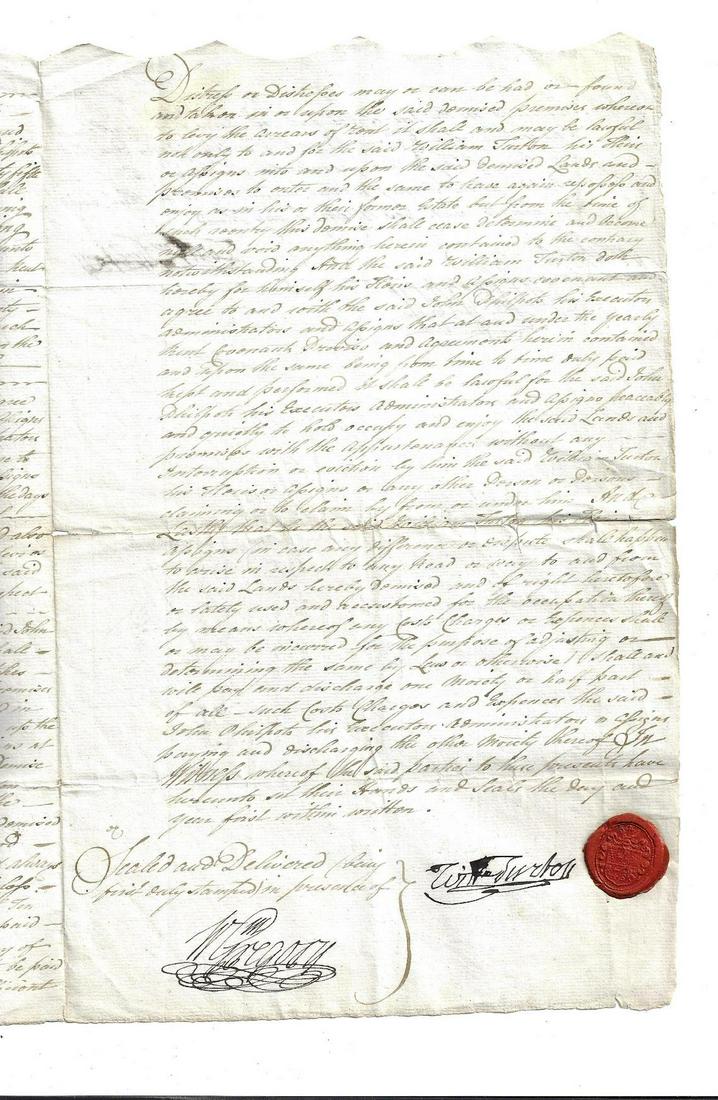 Distress or Distresses may or can be had or found
and taken in or upon the said demised premises whereon
to levy the arrears of rent it shall and may be lawful
not only to and for the said William Turton his Heirs
or Assigns into and upon the said demised Lands and
premises to enter and the same to have again repossess and
enjoy as in his or their former Estate but from the time of
such reentry this demise shall cease determine and become
and void anything herein contained to the contrary
notwithstanding And the said William Turton doth
hereby for himself his Heirs and Assigns covenant
agree to and with the said John Philpots his Executors
Administrators and Assigns that at and under the yearly
Rent Covenants Proviso and Agreements herein contained
and upon the same being from time to time duly paid
kept and performed it shall be lawful for the said John
Philpots his Executors Administrators and Assigns peaceably
and quietly to hold occupy and enjoy the said Lands and
premises with the Appurtenances without any
Interruption or eviction by him the said William Turton
his Heirs or Assigns or any other person or persons
claiming or to claim by from or under him And
Lastly that he the said William Turton his Heirs
Assigns (in case any difference or dispute shall happen
to arise in respect to any head or way to and from
the said Lands hereby demised and of right heretofore
or lately used and accustomed for the occupation thereof
by means whereof any Costs Charges or Expences shall
or may be incurred for the purpose of adjusting or
determining the same by Law or otherwise) shall and
will pay and discharge one Moiety or half part
of all such Costs Charges and Expences the said
John Philpots his Executors Administrators or Assigns
paying and discharging the other Moiety thereof In
Witness whereof the said parties to these presents have
hereunto set their Hands and Seals the day and
year first within written.
Sealed and Delivered (being
first duly stamped) in presence of
Wm Turton
Wm Gregory